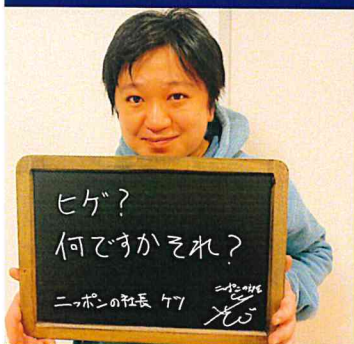 ヒゲ?
何ですかそれ?
ニッポンの社長 ケツ
ニッポンの社長